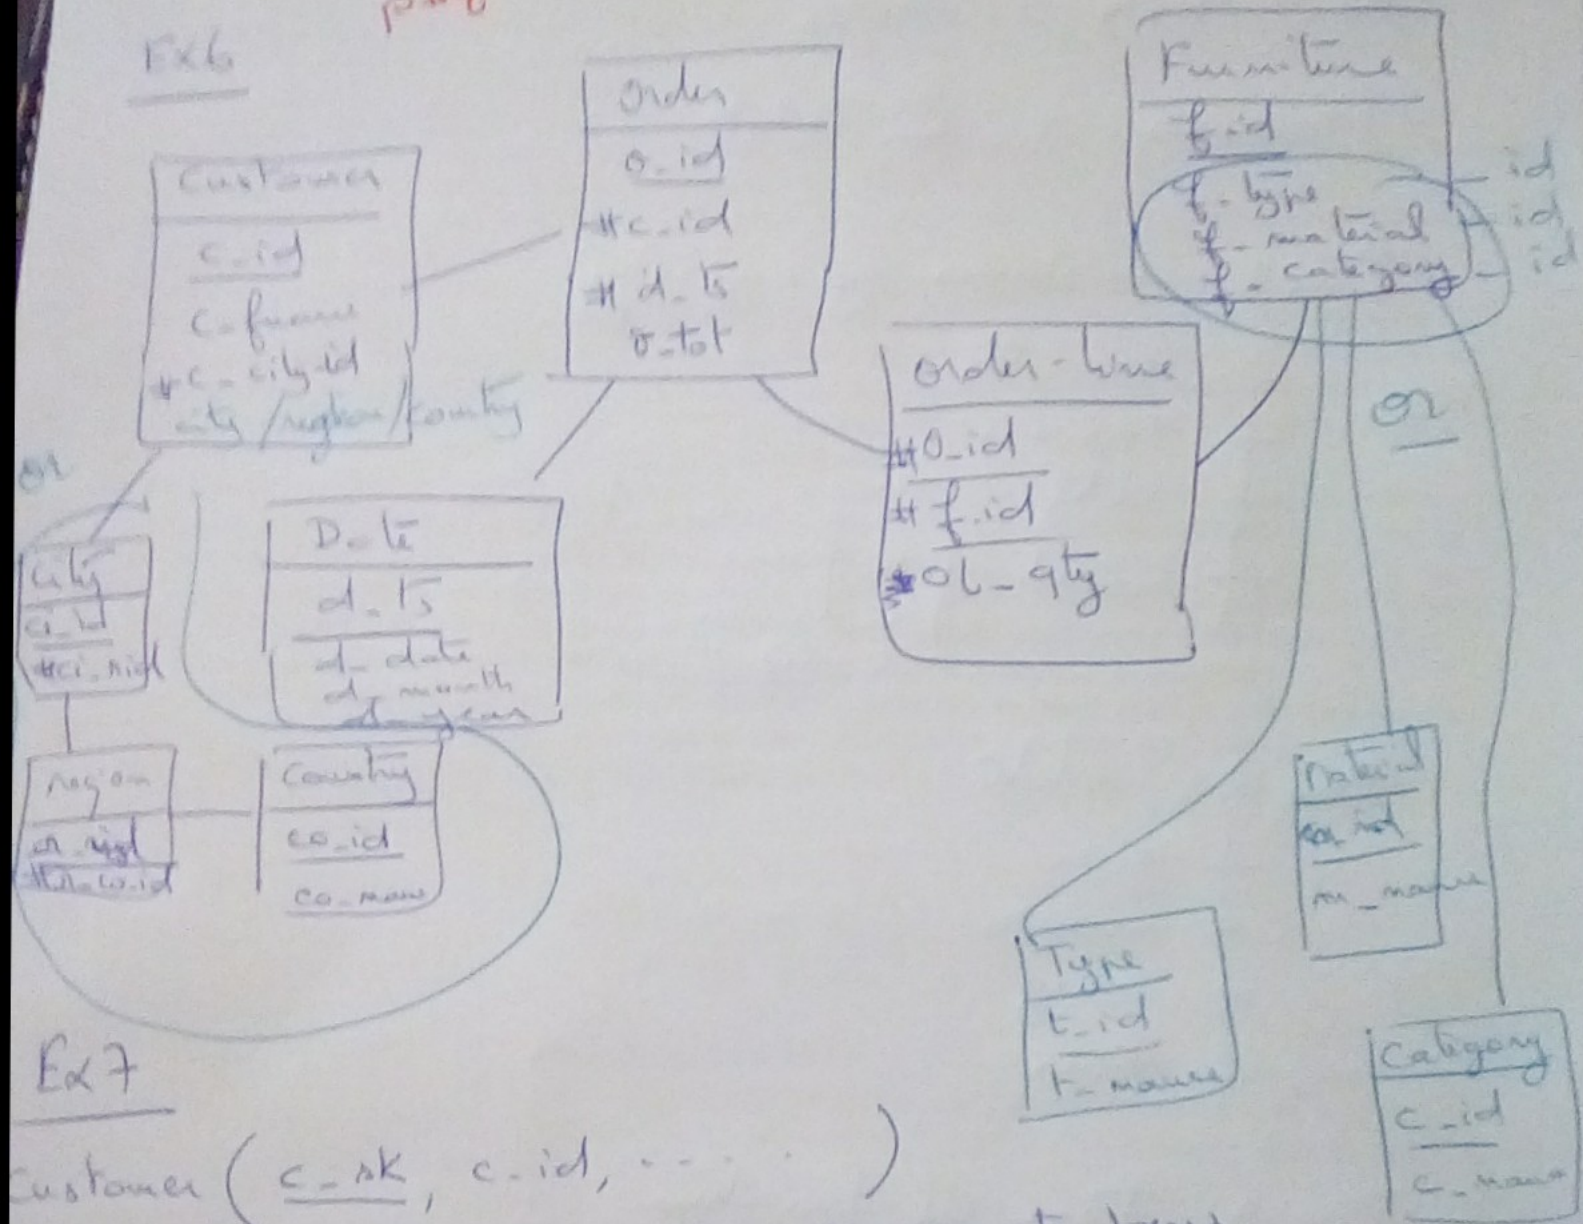 Ex 6
Customer
c_id
c_fname
#c_city_id
city / region / country
or
Order
o_id
#c_id
# d_ts
o_tot
Furniture
f_id
f_type - id
f_material - id
f_category - id
or
order-line
#o_id
# f_id
ol_qty
Date
d_ts
d_date
d_month
d_year
city
ci_id
#ci_rid
region
Country
co_id
co_name
Material
m_name
Type
t_id
t_name
Category
c_id
c_name
Ex 7
Customer ( c_sk, c_id, ..... )